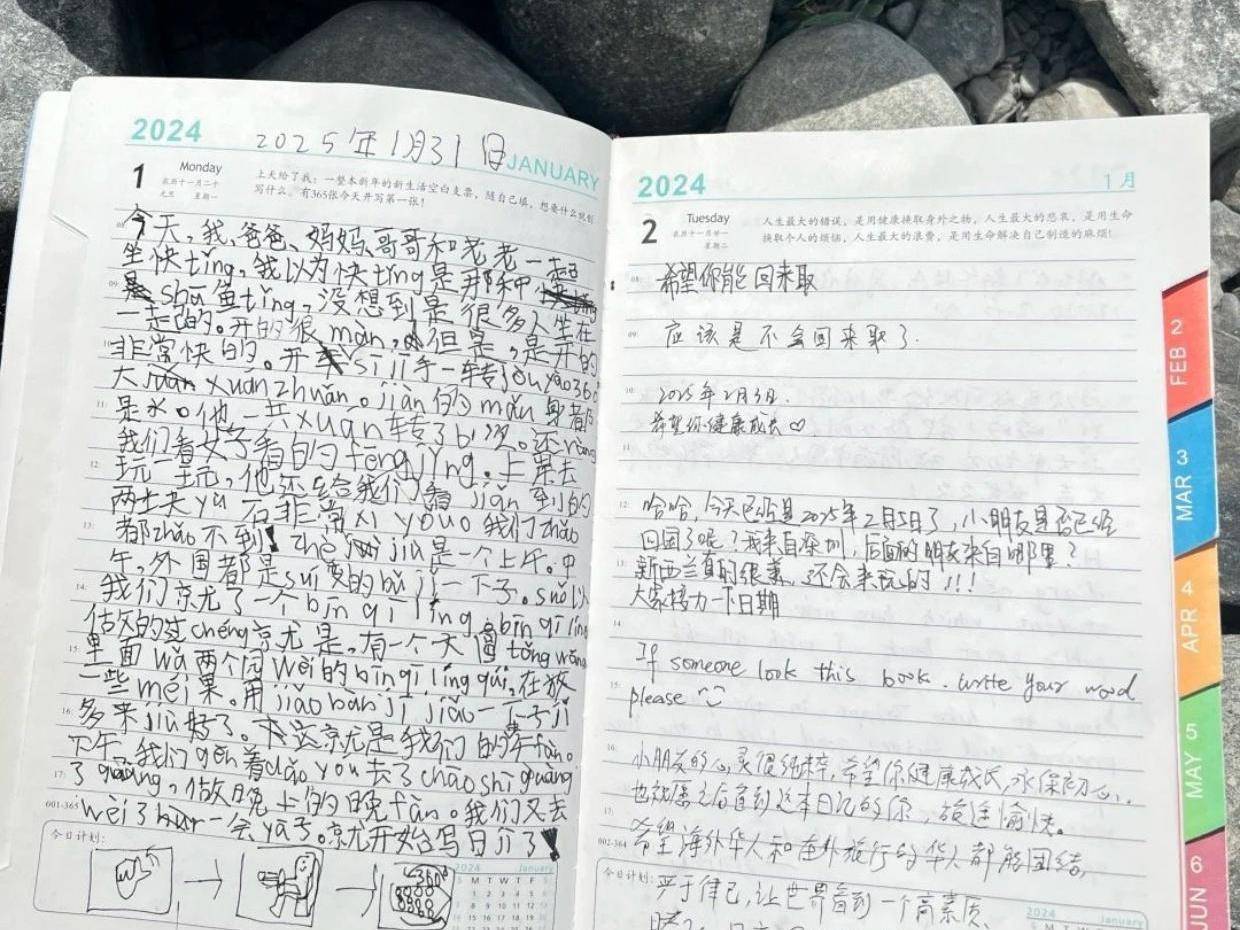 2024
2025年1月31日
JANUARY
1
Monday
农历十一月二十
元旦 星期一
上天给了我：一整本新年的新生活空白支票，随自己填，想要什么就刻
写什么。有365张今天开写第一张！
今天，我、爸爸、妈妈、哥哥和老老一起
坐快tǐng，我以为快tǐng是那种
shā鱼tǐng，没想到是很多人坐在
一起的。开的很màn，但是，是开的
非常快的。开 sī jī手一转jòu yào 360
大 xuán zhuǎn。jiàn的mǎn身都
是水。他一共xuán转了 还ràng
我们看妹子看白勺fēng jǐng。上来去
玩一玩，他还给我们 jiǎn 到的
两土夬yù石非常xī yǒuo我们zhǎo
都zhǎo不到! zhè jiù是一个上午。中
午，外国都是suí 的bǎ jī一下子。suǒ以
我们京尤了一个bīn qī líng。bīn qī líng
做的过chéng京尤是，有一个大圆tǒng wǎng
里面wā两个园wèi的bīn qī líng qiú，在放
一些méi果。用jiǎo bàn jī jiǎo一下子jī
多来jiù好了。这京尤是我们的午fàn。
下午，我们gēn着dǎo you去了chāo shì guàng
了guàng，做晚上的晚fàn。我们又去
wèi 了 一会yā子。京尤开始写日jì了!
001-365
今日计划：
360
2024 January
S M T W T F S
2024
1月
2
Tuesday
农历十一月廿一
星期二
人生最大的错误，是用健康换取身外之物，人生最大的悲哀，是用生命
换取个人的烦恼，人生最大的浪费，是用生命解决自己制造的麻烦！
希望你能回来取
应该是不会回来取了.
2025年2月3日.
希望你健康成长♡
哈哈，今天已经是2025年2月5日了，小朋友是否已经
回国了呢？我来自深圳，后面的朋友来自哪里？
新西兰真的很美，还会来玩的！！！
大家接力一下日期
If someone look this book. write your word
please
小朋友的心灵很纯粹，希望你健康成长，永保初心..
也祝愿之后看到这本日记的你，旅途愉快。
希望海外华人和在外旅行的华人都能团结，
002-364
今日计划：
严于律己，让世界看到一个高素质、
2024 January
2 FEB
3 MAR
4 APR
5 MAY
6 JUN